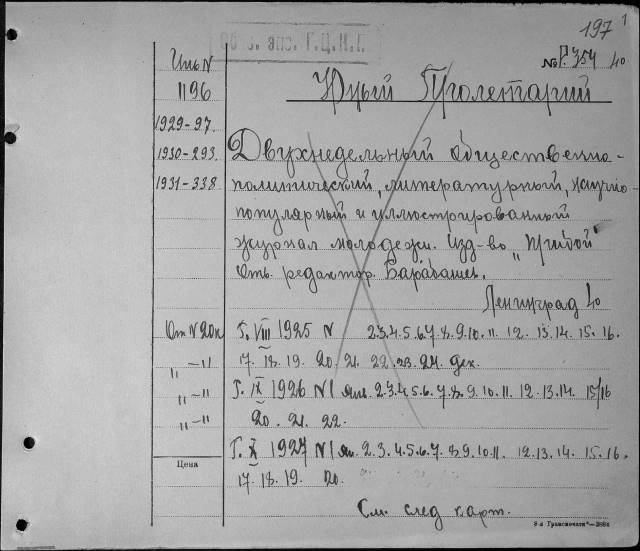 197 1
№ Р.354 40
Инв N
1196
Юный Пролетарий
1929-97.
1930-293.
1931-338
Двухнедельный общественно-
политический, литературный, научно-
популярный и иллюстрированный
журнал молодежи. Изд-во „Прибой"
Отв. редактор. Барабашев.
Ленинград 40
От N 20к Г. VIII 1925 N 2.3.4.5.6.7.8.9.10.11. 12. 13.14. 15.16.
„ – „ 17. 18. 19. 20. 21. 22. 23. 24. дек.
„ – „ Г. IX 1926 N 1 янв. 2.3.4.5.6.7.8.9.10.11. 12.13.14. 15/16
„ – „ 20. 21. 22.
Г. X 1927 N 1 ян. 2.3.4.5.6.7.8.9.10.11. 12.13.14. 15.16.
Цена
17. 18. 19. 20.
См. след карт.